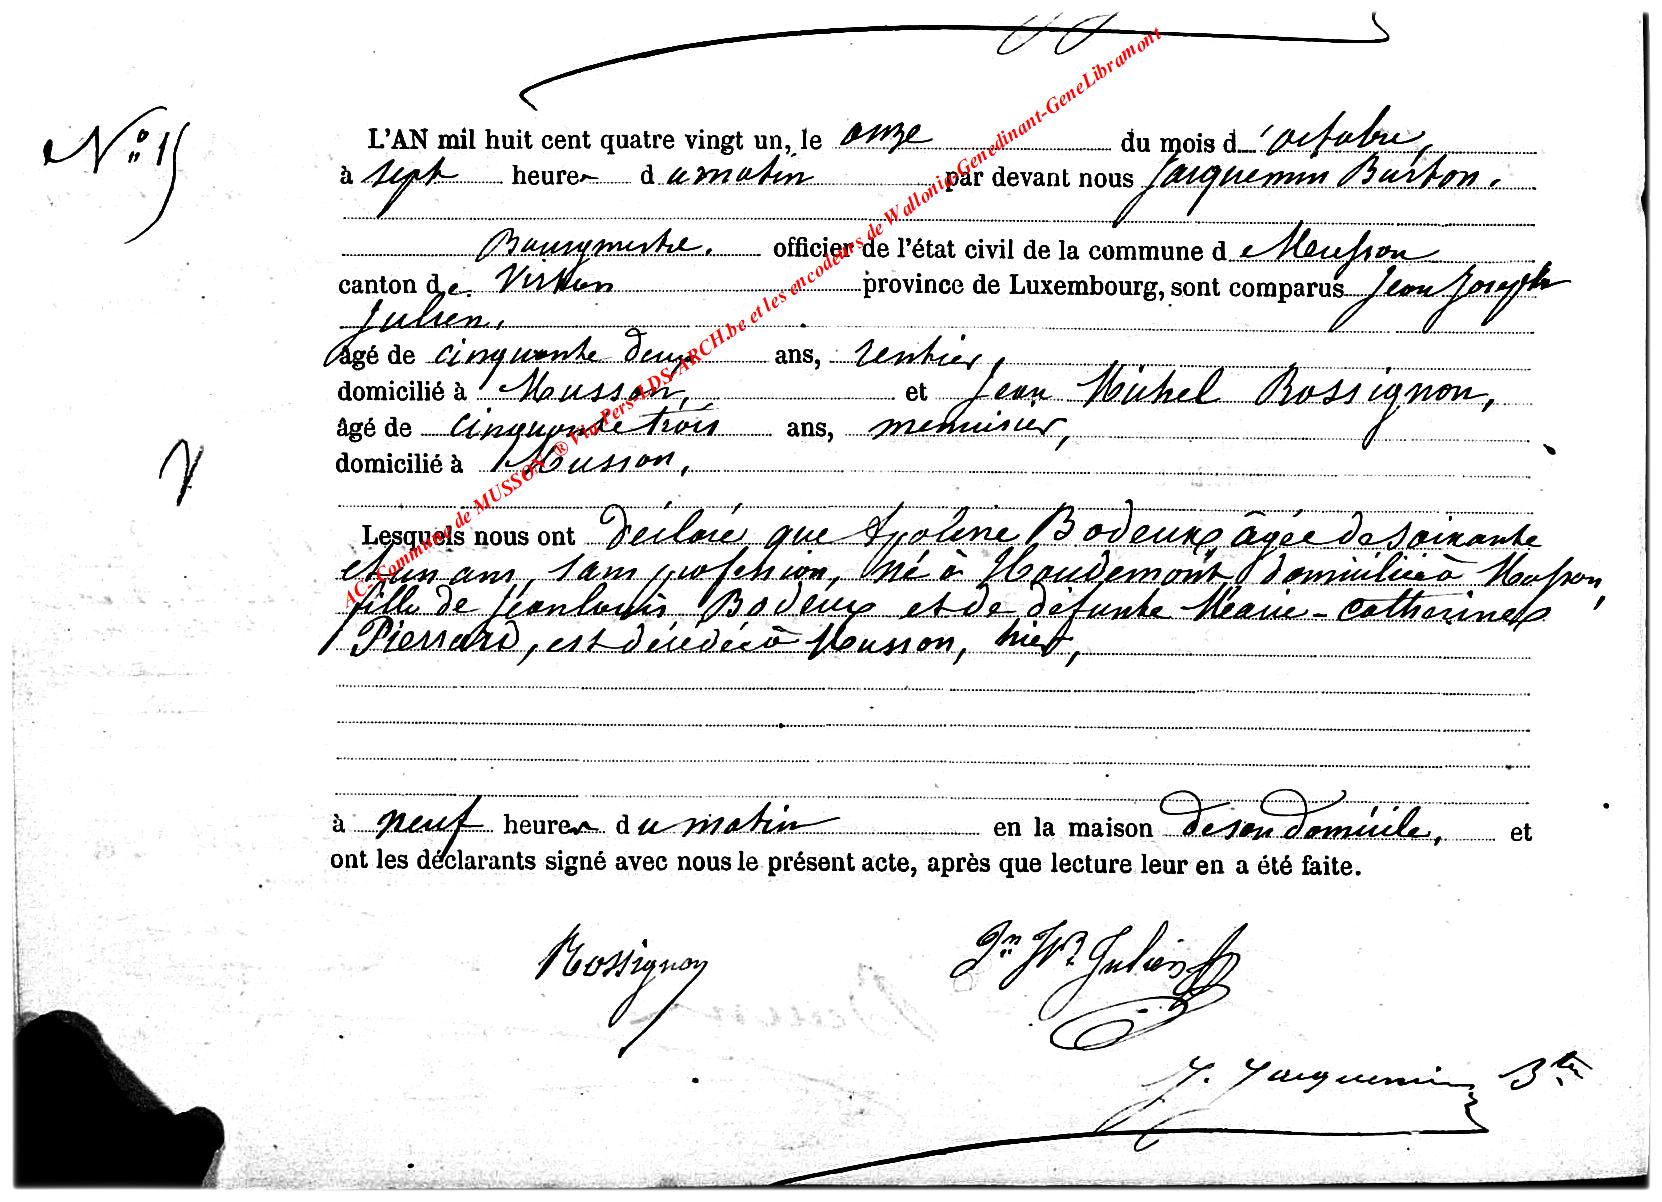 N° 15
L'AN mil huit cent quatre vingt un, le onze du mois d'octobre,
à sept heures du matin par devant nous Jacquemin Burton.
Bourgmestre. officier de l'état civil de la commune de Musson
canton de Virton province de Luxembourg, sont comparus Jean Joseph
Julien,
âgé de cinquante deux ans, rentier,
domicilié à Musson, et Jean Michel Rossignon,
âgé de cinquante trois ans, menuisier,
domicilié à Musson,
Lesquels nous ont déclaré que Apoline Bodeux âgée de soixante
et un ans, sans profession, né à Houdemont, domiciliée à Musson,
fille de Jean louis Bodeux et de défunte Marie-Catherine
Pierrard, est décédée à Musson, hier,
à neuf heures du matin en la maison de son domicile, et
ont les déclarants signé avec nous le présent acte, après que lecture leur en a été faite.
Rossignon
Jn Jh Julien
J. Jacquemin Btn
AC- Commune de MUSSON ® Via Pers-LDS-ARCH.be et les encodeurs de Wallonia-Genedinant-GeneLibramont